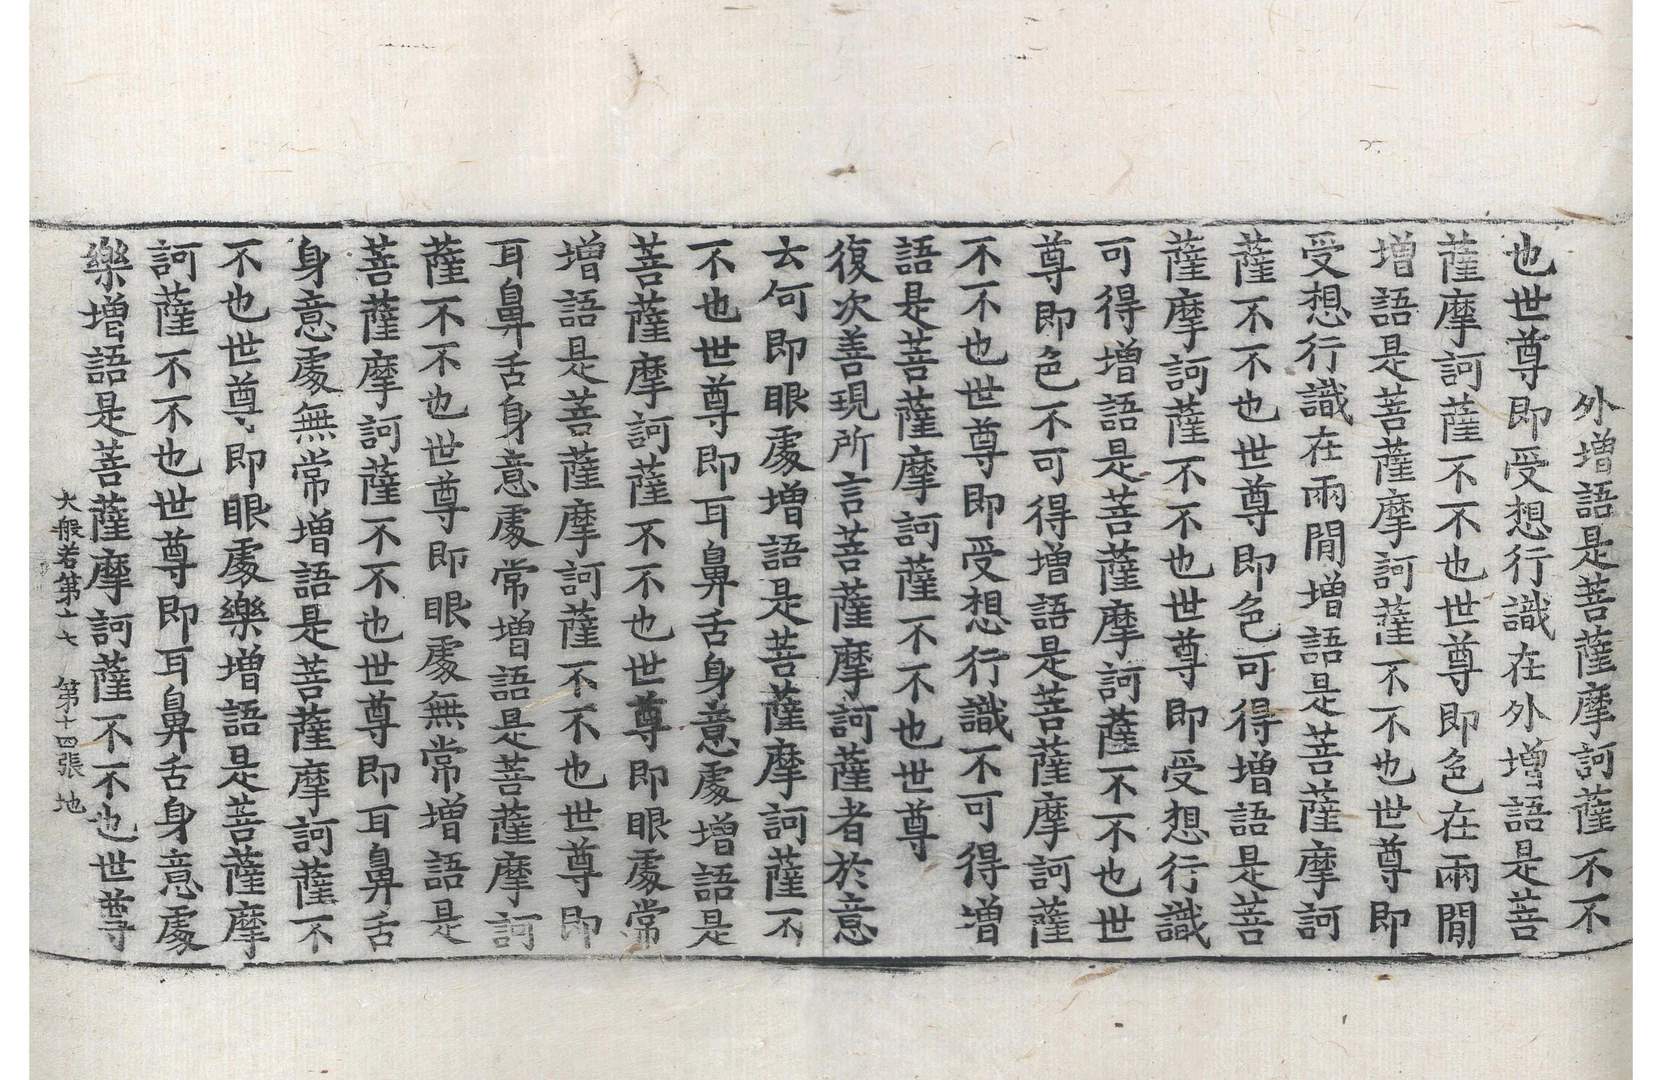 外增語是菩薩摩訶薩不不
也世尊即受想行識在外增語是菩
薩摩訶薩不不也世尊即色在兩閒
增語是菩薩摩訶薩不不也世尊即
受想行識在兩閒增語是菩薩摩訶
薩不不也世尊即色可得增語是菩
薩摩訶薩不不也世尊即受想行識
可得增語是菩薩摩訶薩不不也世
尊即色不可得增語是菩薩摩訶薩
不不也世尊即受想行識不可得增
語是菩薩摩訶薩不不也世尊
復次善現所言菩薩摩訶薩者於意
云何即眼處增語是菩薩摩訶薩不
不也世尊即耳鼻舌身意處增語是
菩薩摩訶薩不不也世尊即眼處常
增語是菩薩摩訶薩不不也世尊即
耳鼻舌身意處常增語是菩薩摩訶
薩不不也世尊即眼處無常增語是
菩薩摩訶薩不不也世尊即耳鼻舌
身意處無常增語是菩薩摩訶薩不
不也世尊即眼處樂增語是菩薩摩
訶薩不不也世尊即耳鼻舌身意處
樂增語是菩薩摩訶薩不不也世尊
大般若第十七 第十四張 地